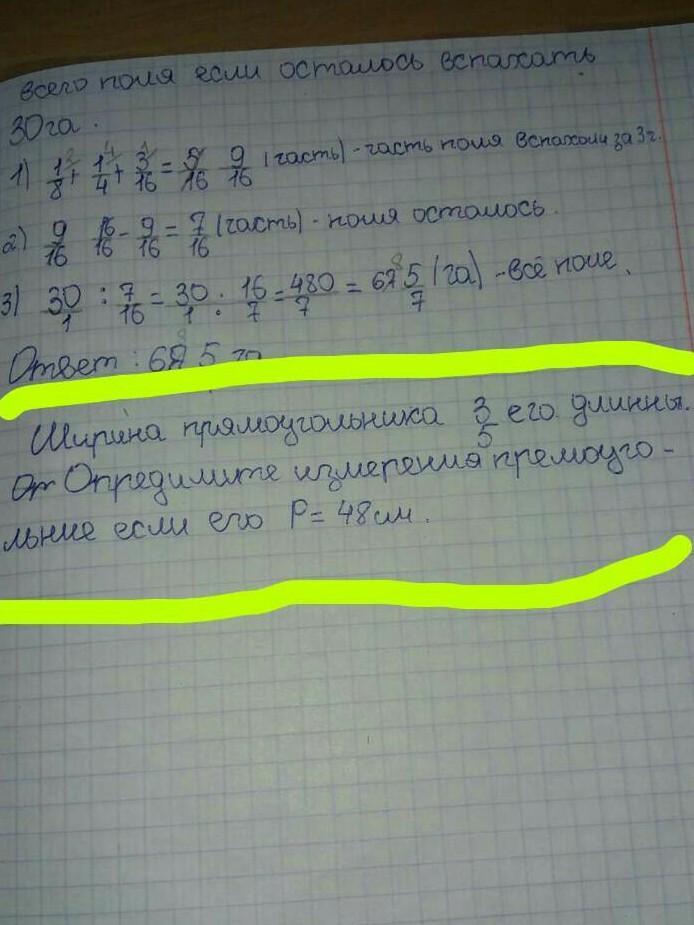 всего поля если осталось вспахать
30га.
1) 1/8 + 1/4 + 3/16 = 5/16 9/16 (часть) - часть поля вспахали за 3г.
2) 9/16 16/16 - 9/16 = 7/16 (часть) - поля осталось.
3) 30/1 : 7/16 = 30/1 . 16/7 = 480/7 = 68 5/7 (га) - всё поле.
Ответ : 68 5 га
Ширина прямоугольника 3/5 его длинны.
От Опредилите измерения премоуго-
льние если его P = 48см.